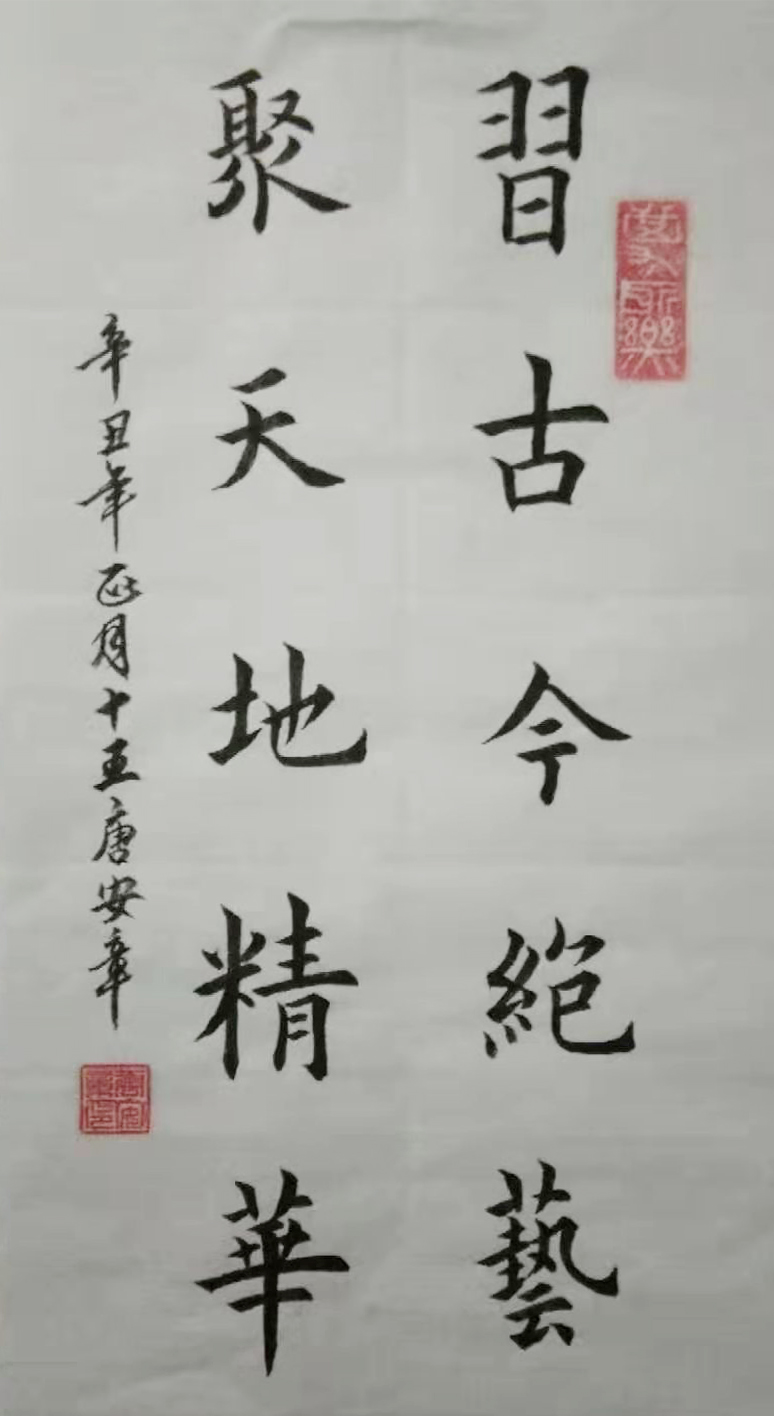 習古今絕藝
聚天地精華
辛丑年正月十五唐安章